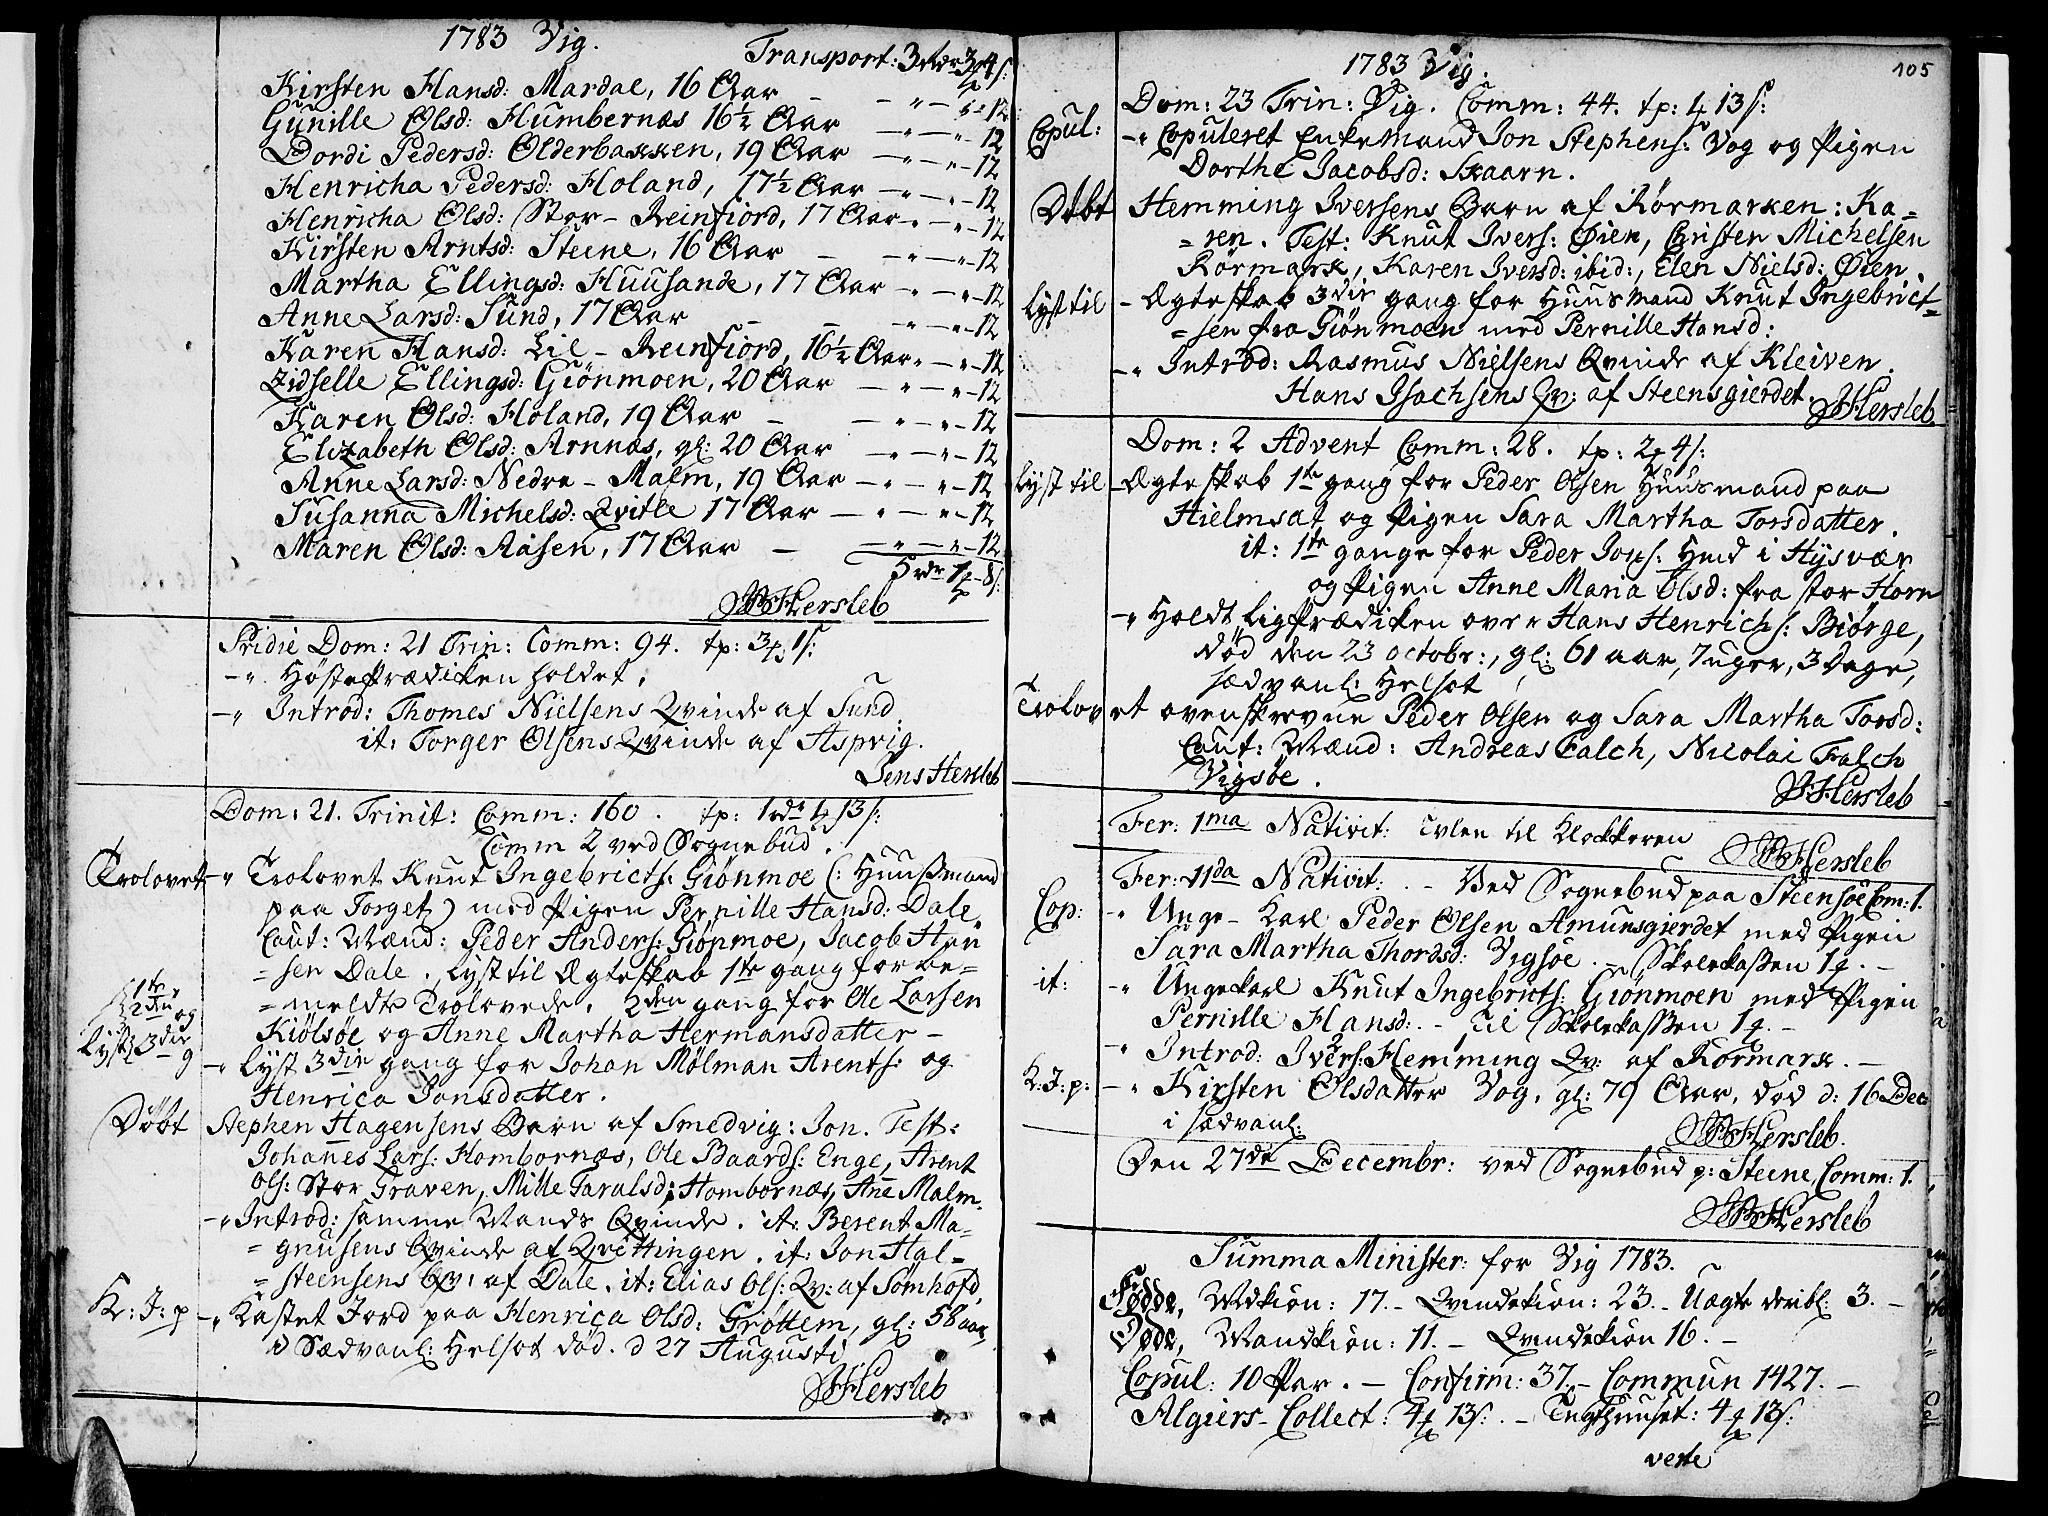 1783 Vig.
Transport: 3 rdr 3 4 s:
Kirsten Hansd: Mardal, 16 Aar - - " - " 12
Gunille Olsd: Humbernæs 16½ Aar - " - " 12
Dordi Pedersd: Olderbakken, 19 Aar - " - " - 12
Henricha Pedersd: Holand, 17½ Aar - " - " - 12
Henricha Olsd: Stor-Reinfiord, 17 Aar " - " - 12
Kirsten Arntsd: Steene, 16 Aar - - " - " - 12
Martha Ellingsd: Huusande, 17 Aar - " - " - 12
Anne Larsd: Sund, 17 Aar - - " - " - 12
Karen Hansd: Lil-Reinfiord, 16½ Aar " - " - 12
Zidselle Ellingsd: Giönmoen, 20 Aar - " - " - 12
Karen Olsd: Holand, 19 Aar - - " - " - 12
Elizabeth Olsd: Arnnæs, gl: 20 Aar - " - " - 12
Anne Larsd: Nedre-Malm, 19 Aar - " - " - 12
Susanna Michelsd: Qvitle 17 Aar - " - " - 12
Maren Olsd: Aasen, 17 Aar - - " - " - 12
5 rdr 1 - 8 s:
JHersleb
Pridie Dom: 21 Trin: Comm: 94. tp: 3 1 s:
-" Høsteprædiken holdet.
-" Introd: Thomes Nielsens Qvinde af Sund.
it: Torger Olsens Qvinde af Aspvig.
Jens Hersleb
Dom: 21. Trinit: Comm: 160. tp: 1 rdr 4 13 s:
Comm 2 ved Sognebud.
Trolovet -" Trolovet Knut Ingebricts: Giönmoe (: Huusmand
paa Torget) med Pigen Pernille Hansd: Dale,
Caut: Mænd: Peder Anders: Giönmoe, Jacob Han
=sen Dale. Lyst til Ægteskab 1te gang for be=
1te, 2den og
=meldte Trolovede. 2den gang for Ole Larsen
Kiölsöe og Anne Martha Hermansdatter -
Lyst 3die g
-" Lyst 3die gang for Johan Mölman Arents: og
Henrica Jonsdatter.
Döbt Stephen Hagensens Barn af Smedvig: Jon. Test:
Johannes Lars: Hombornæs, Ole Baards: Enge, Arent
Ols: Stor Traven, Mille Taralsd: Hombornæs, Anne Malm.
-" Introd: samme Mands Qvinde. it: Berent Ma=
=gnusens Qvinde af Qvittingen. it: Jon Hal=
=steensens Qv: af Dale. it: Elias Ols: Qv: af Sömhofd,
K: J: p -" Kastet Jord paa Henrica Olsd: Gröttem, gl: 58 aar,
Sædvanl: Helsot död. d 27 Augusti
JHersleb
1783 Vig.
105
Dom: 23 Trin: Vig. Comm: 44. tp: 4 13 s:
Copul: -" Copuleret Enkemand Jon Stephens: Vog og Pigen
Dorthe Jacobsd: Skaarn.
Döbt Hemming Iversens Barn af Rörmarken: Ka=
=ren. Test: Knut Ivers: Öien, Christen Michelsen
Rörmark, Karen Iversd: ibid:, Elen Nielsd: Öien.
Lyst til - Ægteskab 3die gang for Huusmand Knut Ingebrict=
=sen fra Giönmoen med Pernille Hansd:
-" Introd: Rasmus Nielsens Qvinde af Kleiven.
Hans Isachsens Qv: af Steensgierdet.
JHersleb
Dom: 2 Advent Comm: 28. tp: 2 4 s:
Lyst til - Ægteskab 1te gang for Peder Olsen Huusmand paa
Hielmsæt og Pigen Sara Martha Torsdatter.
it: 1te gange for Peder Jons: Hmd i Hysvær
og Pigen Anne Maria Olsd: fra stor Horn
-" Holdt Ligprædiken over Hans Henrichs: Biörge,
död den 23 octobr:, gl: 61 aar, 7 uger, 3 Dage,
sædvanl: Helsot
Trolovet ovenskrevne Peder Olsen og Sara Martha Torsd:
Caut: Mænd: Andreas Falch, Nicolai Falch
Vigsöe.
JHersleb
Fer: 1ma Nativit: Talen til Klokkeren
JHersleb
Fer: 11da Nativit: . - Ved Sognebud paa Steensöe Com: 1.
Cop: -" Unge-Karl Peder Olsen Amunsgierdet med Pigen
Sara Martha Thordsd: Vigsöe. - Skolekassen 1 . -
it: -" Ungekarl Knut Ingebricts: Giönmoen med Pigen
Pernille Hansd: - til Skolekassen 1 . -
-" Introd: Ivers: Hemming Qv: af Rörmark. -
K: J: p: -" Kirsten Olsdatter Vog, gl: 79 Aar, död d: 16 Dec
i sædvanl:
JHersleb.
Den 27de Decembr: ved Sognebud p: Steene, Comm: 1.
JHersleb
Summa Minister: for Vig 1783.
Födde, Mdkiön: 17. - Qvindekiön: 23. - Uægte deribl: 3. -
Döde, Mandkiön: 11. - Qvindekiön 16. -
Copul: 10 Par. - Confirm: 37. - Commun 1427. -
Algiers-Collect: 4 13 s: - Tugthuuset: 4 13 s:
verte